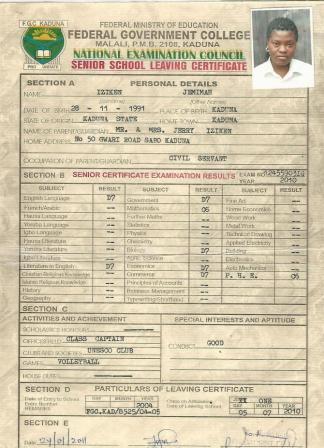 F.G.C. KADUNA
PRO UNITATE
FEDERAL MINISTRY OF EDUCATION
FEDERAL GOVERNMENT COLLEGE
MALALI, P.M.B. 2106, KADUNA
NATIONAL EXAMINATION COUNCIL
SENIOR SCHOOL LEAVING CERTIFICATE
SECTION A PERSONAL DETAILS
NAME IZIKEN JEMIMAH
(Other Names)
DATE OF BIRTH 28 - 11 - 1991 PLACE OF BIRTH KADUNA
STATE OF ORIGIN KADUNA STATE HOME TOWN KADUNA
NAME OF PARENT/GUARDIAN MR. & MRS. JERRY IZIKEN
HOME ADDRESS No 50 GWARI ROAD SABO KADUNA
OCCUPATION OF PARENT/GUARDIAN CIVIL SERVANT
SECTION B SENIOR CERTIFICATE EXAMINATION RESULTS EXAM NO
YEAR 2010
SUBJECT RESULT SUBJECT RESULT SUBJECT RESULT
English Language D7 Government D7 Fine Art --
French/Arabic -- Mathematics Home Economics --
Hausa Language -- Further Maths -- Wood Work --
Yoruba Language -- Statistics -- Metal Work --
Igbo Language -- Physics -- Technical Drawing --
Hausa Literature -- Chemistry -- Applied Electricity --
Yoruba Literature -- Biology D7 Building --
Igbo Literature -- Agric. Science -- Electronics --
Literature in English D7 Economics D7 Auto Mechanics --
Christian Religious Knowledge Commerce D7 P. H. E.
Islamic Religious Knowledge -- Principles of Accounts --
History -- Business Management --
Geography -- Typewriting/Shorthand --
SECTION C
ACTIVITIES AND ACHIEVEMENT SPECIAL INTERESTS AND APTITUDE
SCHOLASTIC HONOURS
OFFICES HELD CLASS CAPTAIN CONDUCT GOOD
CLUBS AND SOCIETIES UNESCO CLUB
GAMES VOLLEYBALL
HOUSE
SECTION D PARTICULARS OF LEAVING CERTIFICATE
Date of Entry to School DAY MONTH YEAR DAY MONTH YEAR
Entry Number 2004 Date of Leaving School 05 07 2010
REMARKS FGC.KAD/B525/04-05
SECTION E
Date 24/01/2011